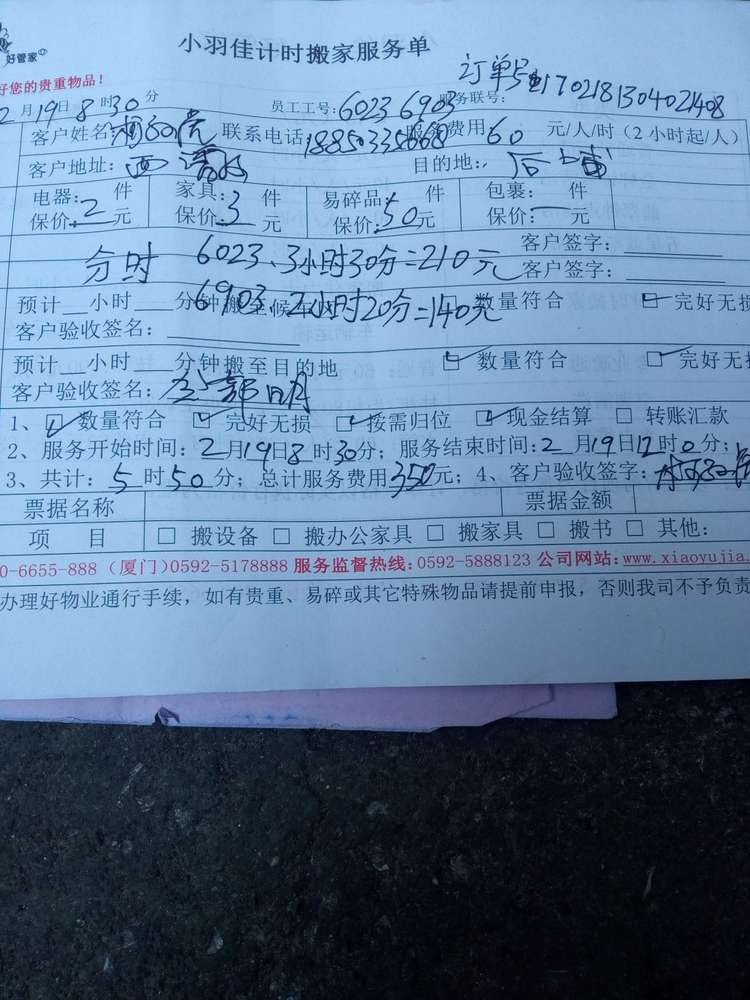 好管家
小羽佳计时搬家服务单
好您的贵重物品！
订单号 1702181304021408
2月19日8时30分 员工工号：6023 6903 服务联号：
客户姓名： 联系电话：18850335668 服务费用 60 元/人/时（2小时起/人）
客户地址： 西 目的地： 后埔
电器： 件 家具： 件 易碎品： 件 包裹： 件
保价：2元 保价：3元 保价：50元 保价：一元
分时 6023、3小时30分=210元 客户签字：
客户签字：
6903、2小时20分=140元
预计 小时 分钟搬至候车区 数量符合 □ 完好无损
客户验收签名：
预计 小时 分钟搬至目的地 ☑ 数量符合 □ 完好无损
客户验收签名：
1、☑ 数量符合 ☑ 完好无损 ☑ 按需归位 ☑ 现金结算 □ 转账汇款
2、服务开始时间：2月19日8时30分；服务结束时间：2月19日12时0分；
3、共计：5时50分；总计服务费用350元；4、客户验收签字：
票据名称 票据金额
项 目 □ 搬设备 □ 搬办公家具 □ 搬家具 □ 搬书 □ 其他：
0-6655-888（厦门）0592-5178888 服务监督热线：0592-5888123 公司网站：www.xiaoyujia.
办理好物业通行手续，如有贵重、易碎或其它特殊物品请提前申报，否则我司不予负责